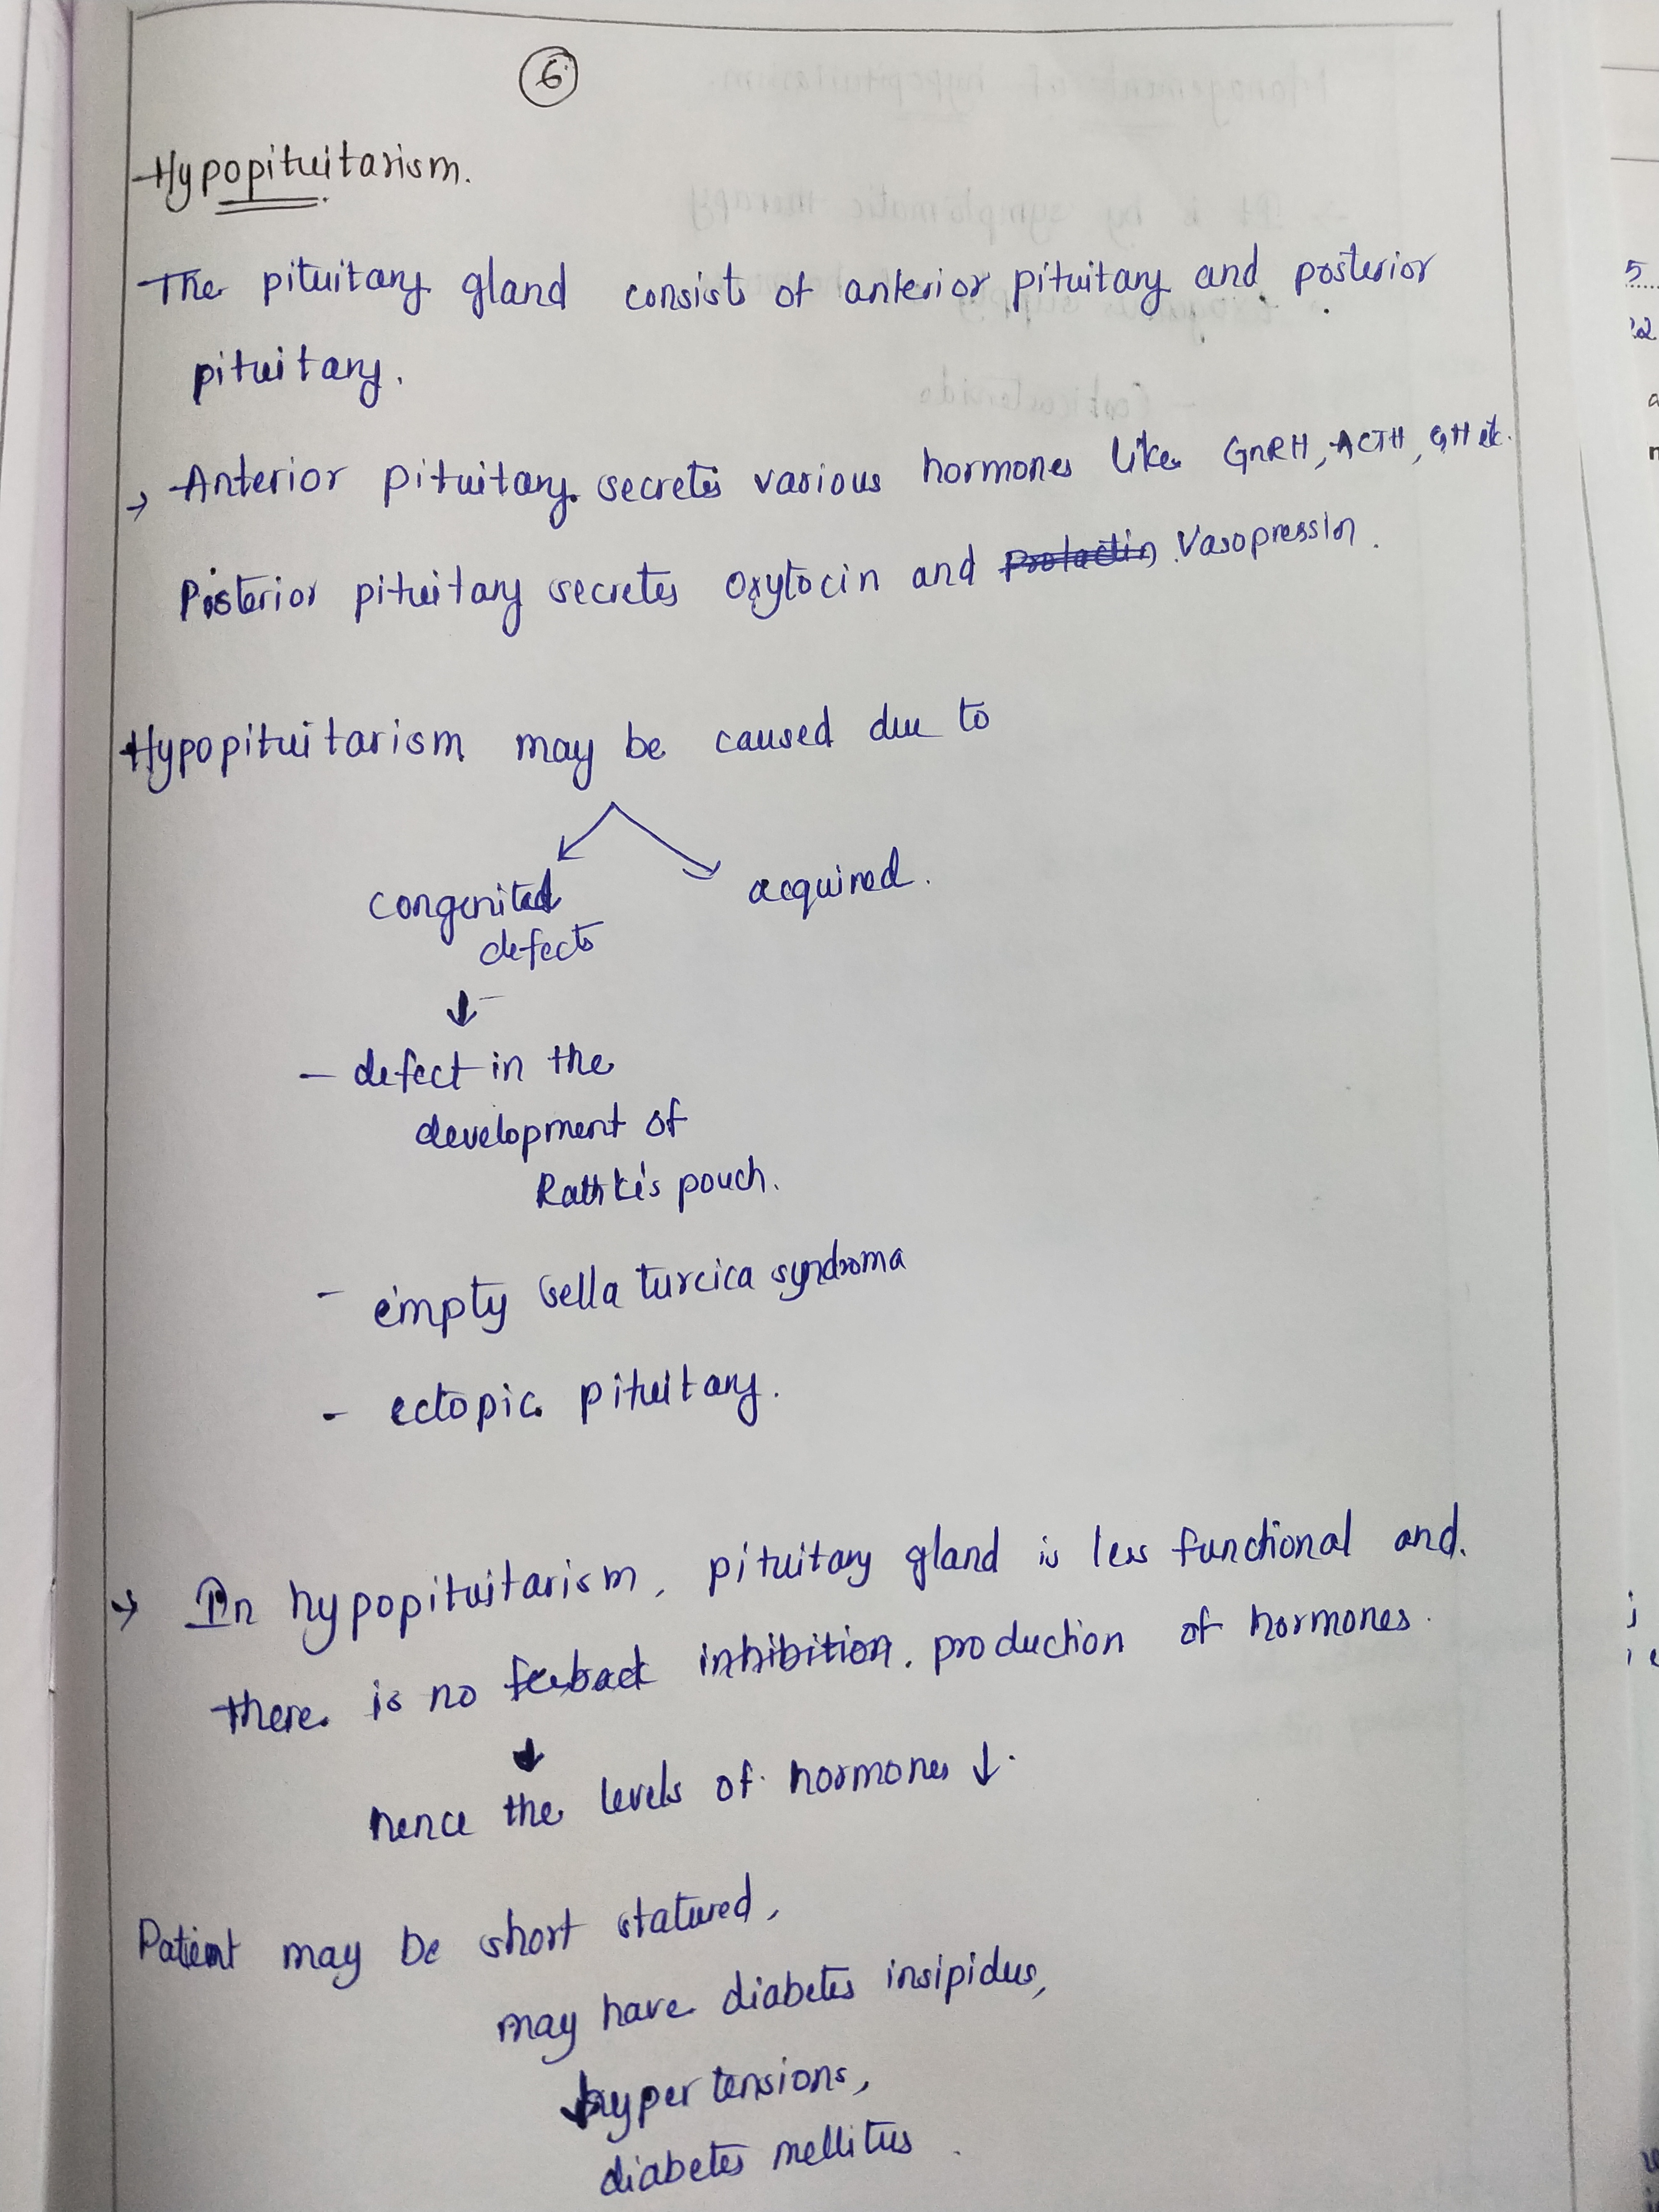 6
Hypopituitarism.
The pituitary gland consists of anterior pituitary and posterior
pituitary.
→ Anterior pituitary secretes various hormones like GnRH, ACTH, GH etc.
Posterior pituitary secretes oxytocin and Prolactin Vasopressin.
Hypopituitarism may be caused due to
congenital acquired.
defects
↓
- defect in the
development of
Rathke's pouch.
- empty sella turcica syndroma
- ectopic pituitary.
→ In hypopituitarism, pituitary gland is less functional and.
there is no feeback inhibition. production of hormones.
↓
hence the levels of hormones ↓.
Patient may be short statured,
may have diabetes insipidus,
hypertensions,
diabetes mellitus.